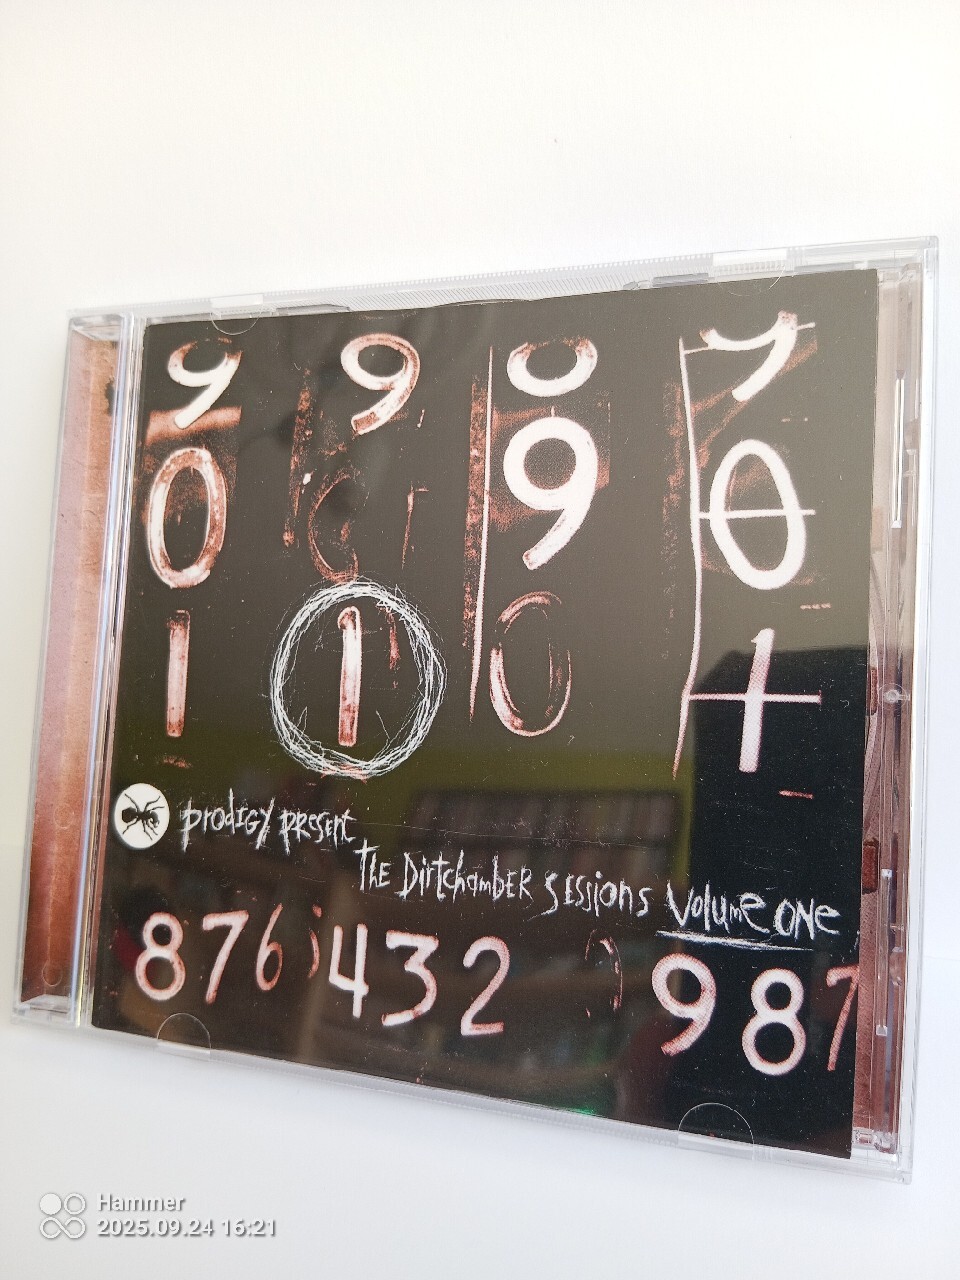 9 9 8 7
0 0 9 0
1 1 0 1
prodigy present
The Dirtchamber Sessions Volume One
876 432 987
Hammer
2025.09.24 16:21